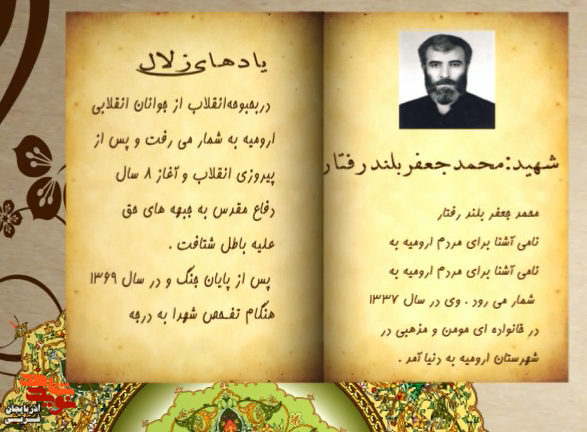 شهید:محمدجعفربلندرفتار
محمد جعفر بلند رفتار
نامی آشنا برای مردم ارومیه به
نامی آشنا برای مردم ارومیه به
شمار می رود . وی در سال ۱۳۳۷
در خانواده ای مومن و مذهبی در
شهرستان ارومیه به دنیا آمد .
یادهای زلال
دربحبوحهانقلاب از جوانان انقلابی
ارومیه به شمار می رفت و پس از
پیروزی انقلاب و آغاز ۸ سال
دفاع مقدس به جبهه های حق
علیه باطل شتافت .
پس از پایان جنگ و در سال ۱۳۶۹
هنگام تفحص شهدا به درجه
آذربایجان
غربی